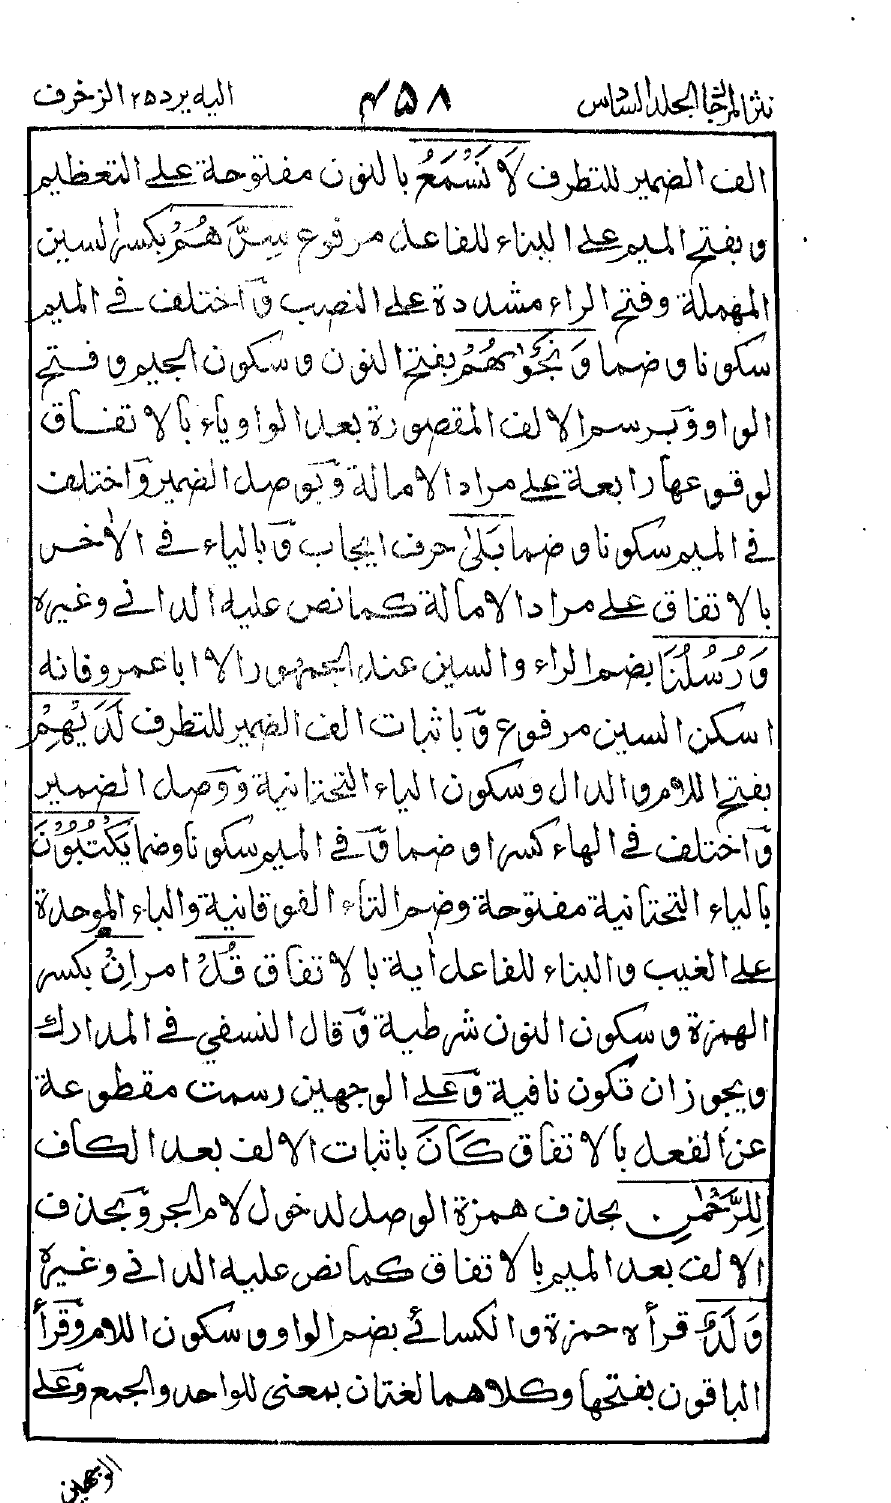 نثر المرجان المجلد السادس ۴۵۸ اليه يرد ۲۵ الزخرف
الف الضمير للتطرف لَا نَسْمَعُ بالنون مفتوحة على التعظيم
و بفتح الميم على البناء للفاعل مرفوع سِرَّهُمْ بكسر السين
المهملة وفتح الراء مشددة على النصب وَاختلف في الميم
سكونا و ضما وَ نَجْوٰىهُمْ بفتح النون و سكون الجيم و فتح
الواو وَ برسم الالف المقصورة بعد الواو ياء بالاتفاق
لوقوعها رابعة على مراد الامالة وَ بوصل الضمير وَاختلف
في الميم سكونا و ضما بَلٰى حرف ايجاب وَ بالياء في الاٰخر
بالاتفاق على مراد الامالة كما نص عليه الداني وغيره
وَ رُسُلُنَا بضم الراء و السين عند الجمهور الا ابا عمرو فانه
اسكن السين مرفوع وَ باثبات الف الضمير للتطرف لَدَيْهِمْ
بفتح اللام و الدال و سكون الياء التحتانية وَ وصل الضمير
وَاختلف في الهاء كسرا و ضما وَ في الميم سكونا و ضما يَكْتُبُوْنَ
بالياء التحتانية مفتوحة و ضم التاء الفوقانية والباء الموحدة
على الغيب و البناء للفاعل اٰية بالاتفاق قُلْ امر اِنْ بكسر
الهمزة و سكون النون شرطية وَ قال النسفي في المدارك
و يجوز ان تكون نافية وَ على الوجهين رسمت مقطوعة
عن الفعل بالاتفاق كَانَ باثبات الالف بعد الكاف
لِلرَّحْمٰنِ بحذف همزة الوصل لدخول لام الجر وَ بحذف
الالف بعد الميم بالاتفاق كما نص عليه الداني وغيره
وَلَدٌ قرأه حمزة و الكسائي بضم الواو و سكون اللام وَقرأ
الباقون بفتحها و كلاهما لغتان بمعنى للواحد والجمع وَعلى
الوجهين